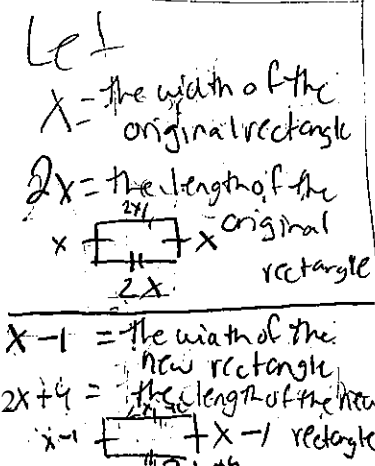 Let
x = the width of the
original rectangle
2x = the length of the
original
rectangle
x
x
2x
x-1 = the width of the
new rectangle
2x+4 = the length of the new
rectangle
x-1
x-1